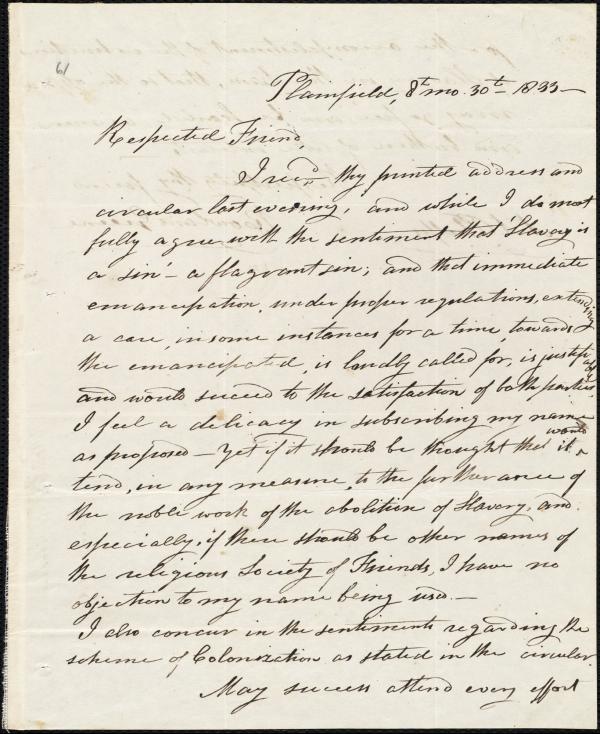 61
Plainfield, 8th mo. 30th 1833—
Respected Friend,
I recd. thy printed address and
circular last evening, and while I do most
fully agree with the sentiment that 'Slavery is
a sin'— a flagrant sin; and that immediate
emancipation, under proper regulations, extending
a care, in some instances for a time, towards
the emancipated, is loudly called for, is justifiable
and would succeed to the satisfaction of both parties,
I feel a delicacy in subscribing my name
as proposed — Yet if it should be thought that it would
tend, in any measure, to the furtherance of
the noble work of the abolition of Slavery, and
especially, if there should be other names of
the religious Society of Friends, I have no
objection to my name being used.—
I also concur in the sentiments regarding the
scheme of Colonization as stated in the circular.
May success attend every effort